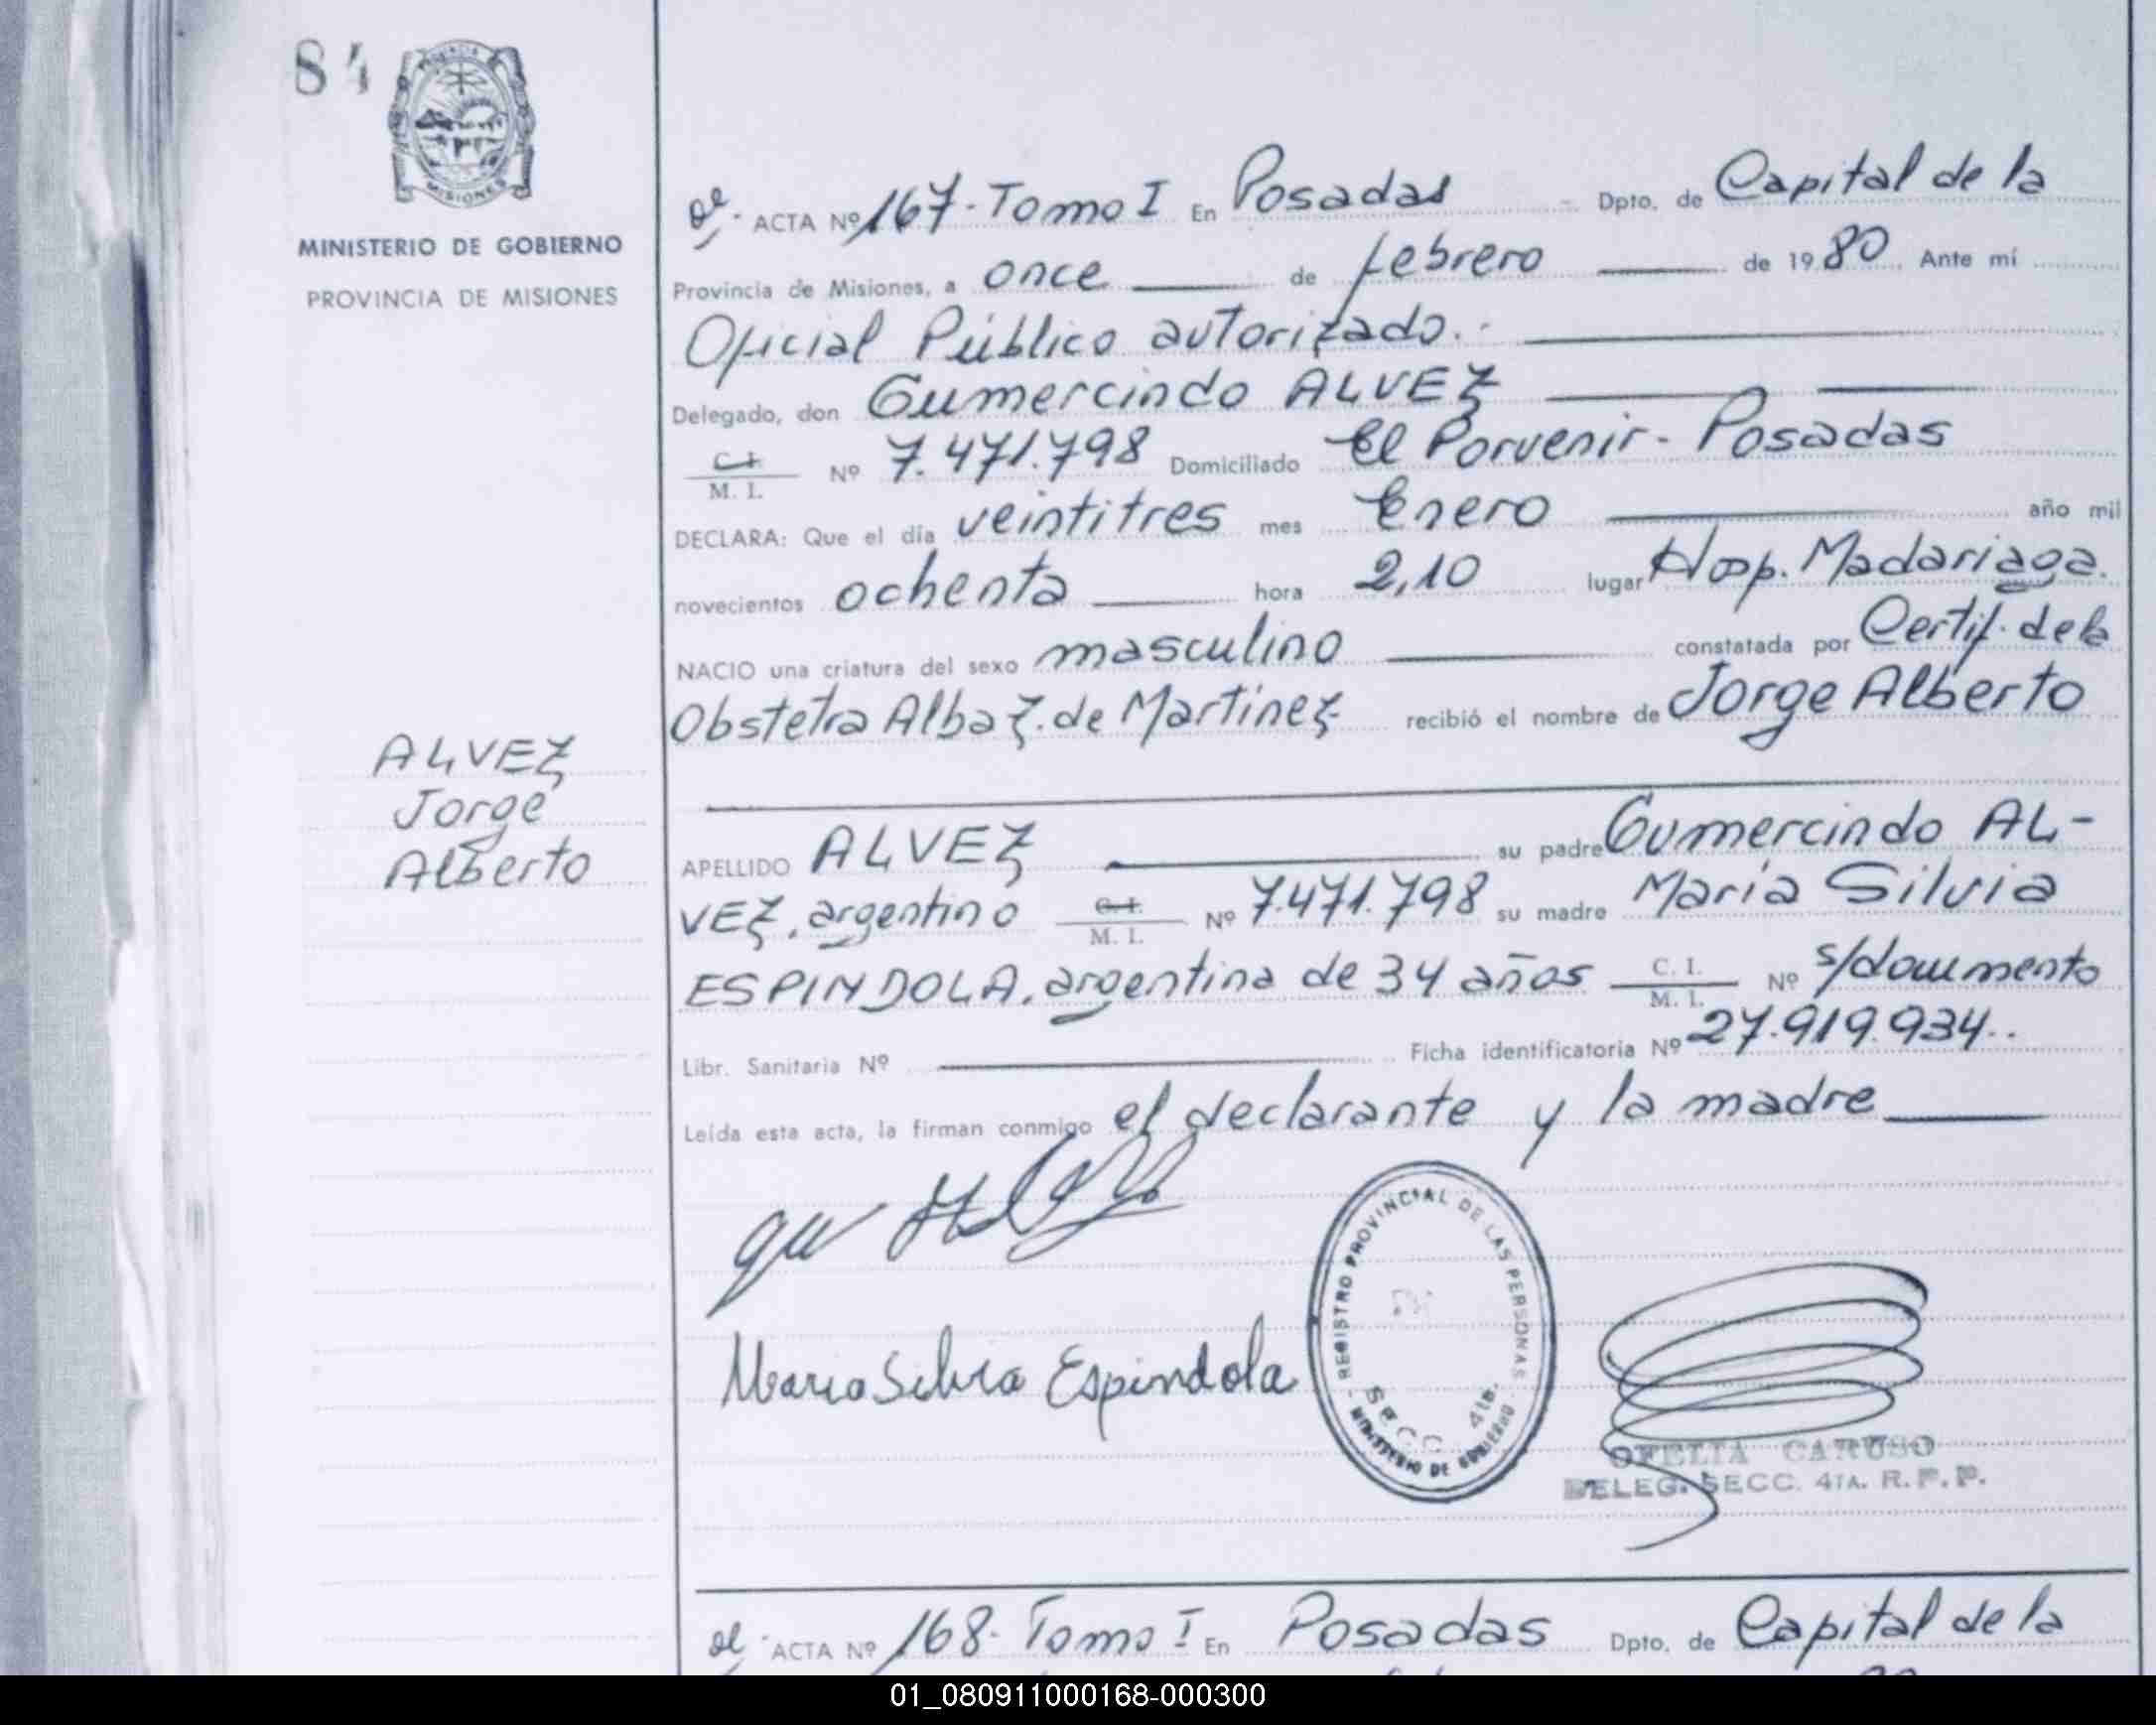 84
PROVINCIA
MISIONES
MINISTERIO DE GOBIERNO
PROVINCIA DE MISIONES
ACTA Nº 167 - Tomo I En Posadas Dpto. de Capital de la
Provincia de Misiones, a once de febrero de 1980 Ante mí
Oficial Público autorizado.-
Delegado, don Gumercindo ALVEZ
C. I.
M. I. Nº 7.471.798 Domiciliado El Porvenir - Posadas
DECLARA: Que el día veintitres mes Enero año mil
novecientos ochenta hora 2,10 lugar Hosp. Madariaga.
NACIO una criatura del sexo masculino constatada por Certif. de la
Obstetra Alba Z. de Martinez recibió el nombre de Jorge Alberto
ALVEZ
Jorge
Alberto
APELLIDO ALVEZ su padre Gumercindo AL-
VEZ, argentino C. I. M. I. Nº 7.471.798 su madre María Silvia
ESPINDOLA, argentina de 34 años C. I. M. I. Nº s/documento
Libr. Sanitaria Nº Ficha identificatoria Nº 27.919.934..
Leída esta acta, la firman conmigo el declarante y la madre
Maria Silvia Espindola
REGISTRO PROVINCIAL DE LAS PERSONAS
SECC. 4ta.
MINISTERIO DE GOBIERNO
OFELIA CARUSO
DELEG. SECC. 4TA. R. P. P.
ACTA Nº 168 - Tomo I En Posadas Dpto. de Capital de la
01_080911000168-000300